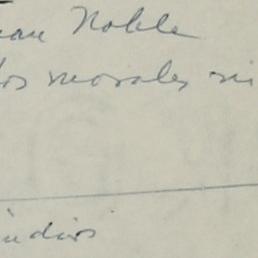 Noble
los morales ni
indios